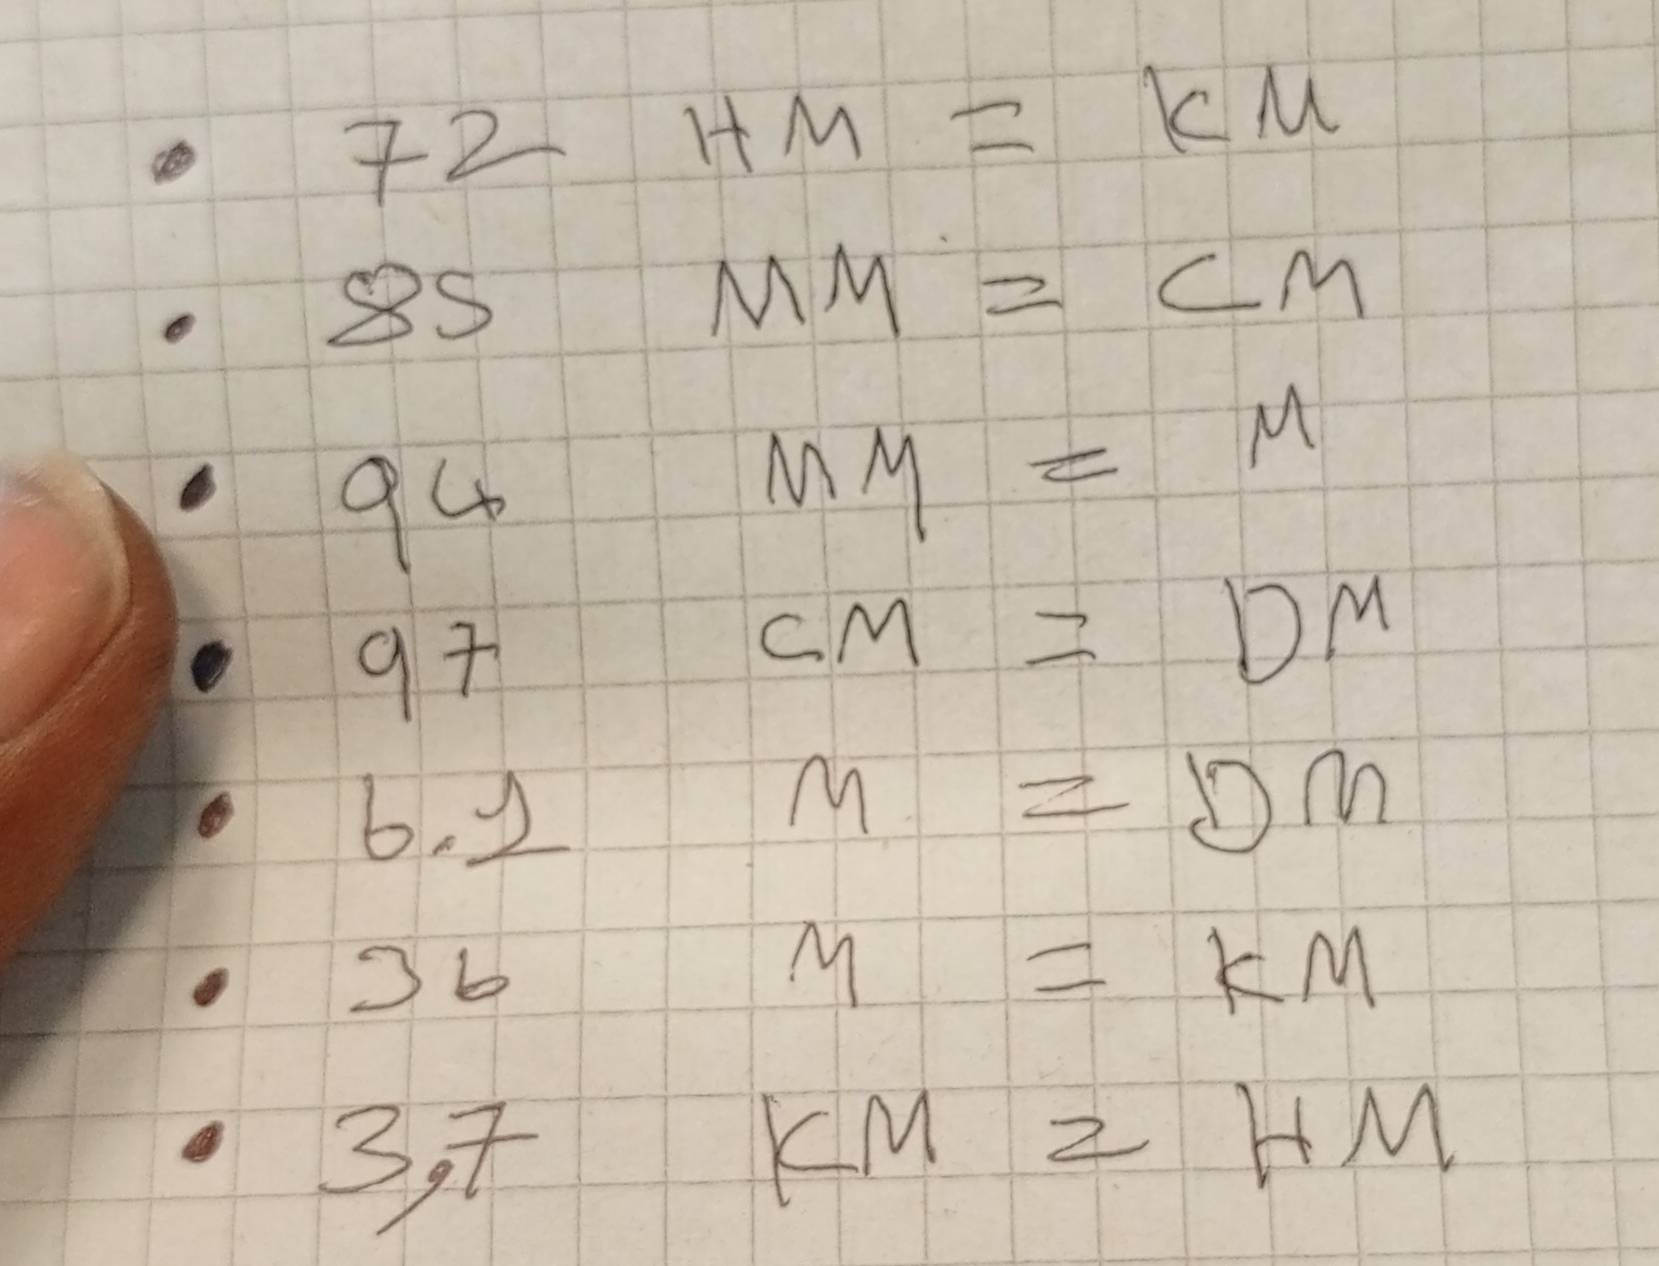 • 72 HM = KM
• 85 MM = CM
• 94 MM = M
• 97 CM = DM
• 6.1 M = DM
• 36 M = KM
• 3,7 KM = HM